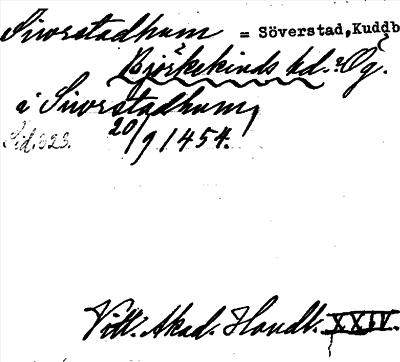 Siworstadhum = Söverstad, Kuddb
Björkekinds hd. Ög.
i Siworstadhum
Sid. 323. 20/9 1454.
Vitt. Akad. Handl. XXIV.